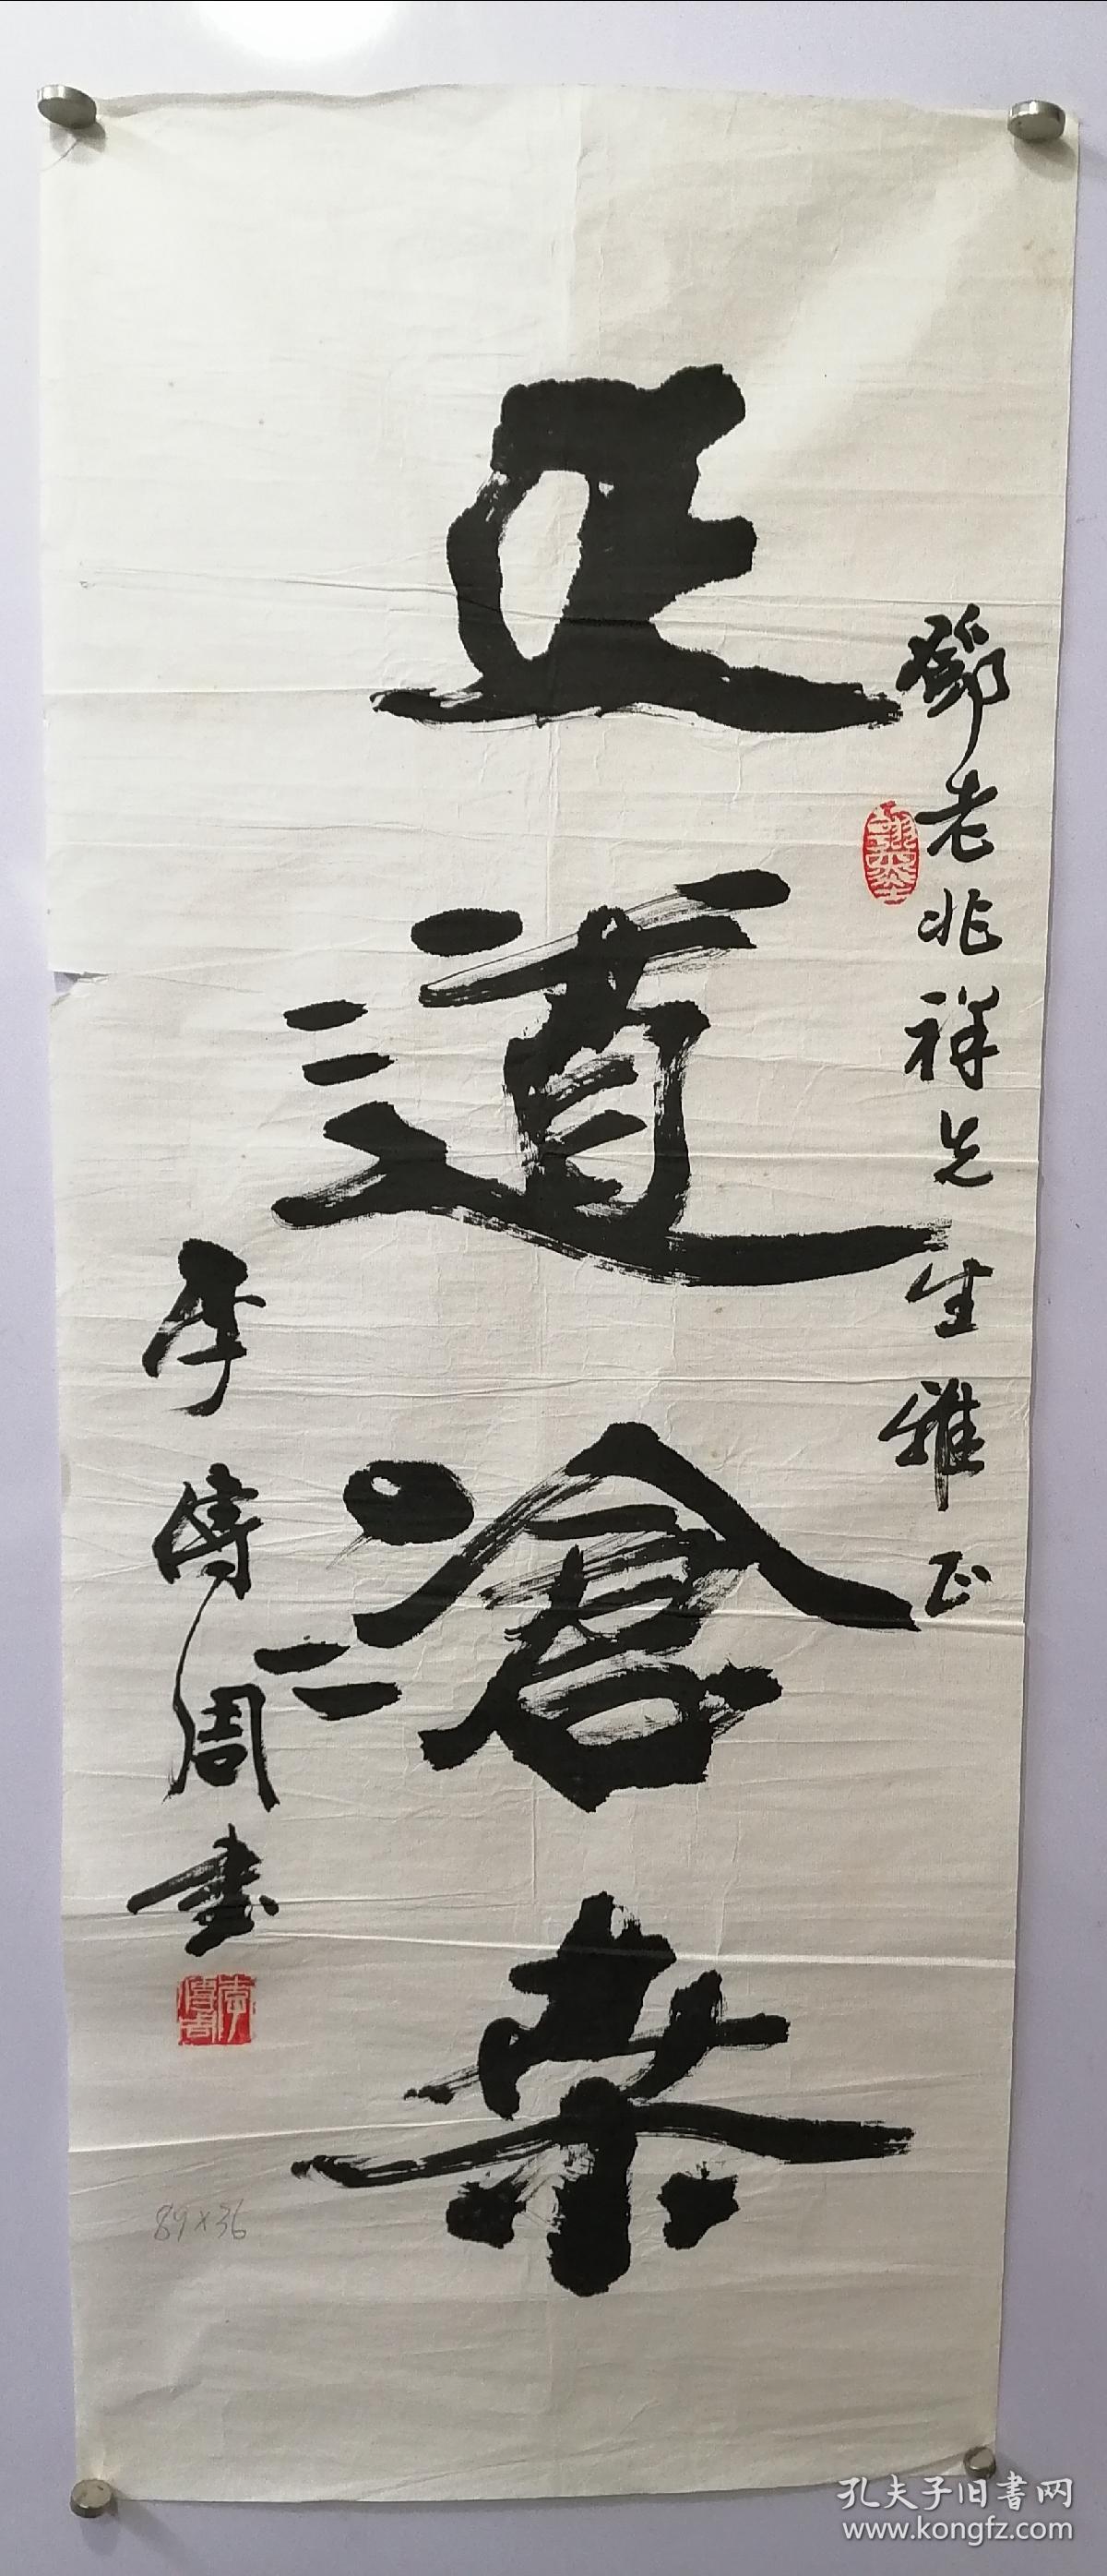 鄧老兆祥先生雅正
正道滄桑
李傳周書
李傳周
89×36
孔夫子旧書网
www.kongfz.com